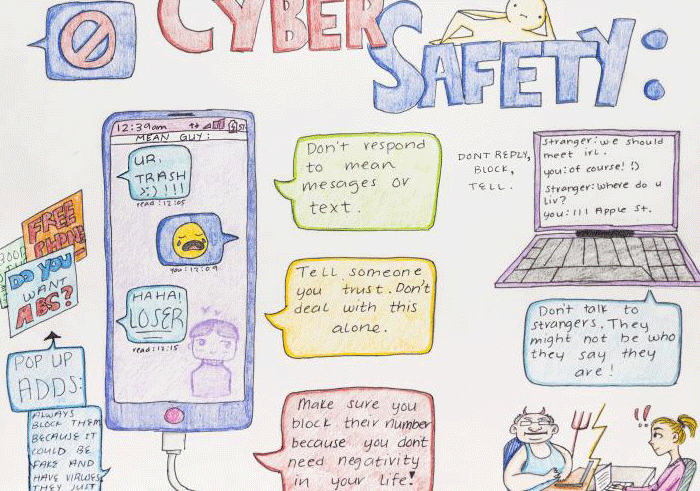 CYBER
SAFETY:
12:39am
MEAN GUY:
UR.
TRASH
>:) !!!
read: 12:05
you: 12:09
HAHA!
LOSER
read: 12:15
Don't respond
to mean
mesages or
text.
Tell someone
you trust. Don't
deal with this
alone.
Make sure you
block their number
because you dont
need negativity
in your life!
DONT REPLY,
BLOCK,
TELL.
Stranger: we should
meet irl.
you: of course! :)
Stranger: where do u
liv?
you: 111 Apple St.
Don't talk to
strangers. They
might not be who
they say they
are!
!!
FREE
PHONE
DO YOU
WANT
ABS?
POP UP
ADDS:
ALWAYS
BLOCK THEM
BECAUSE IT
COULD BE
FAKE AND
HAVE VIRUSES
THEY JUST